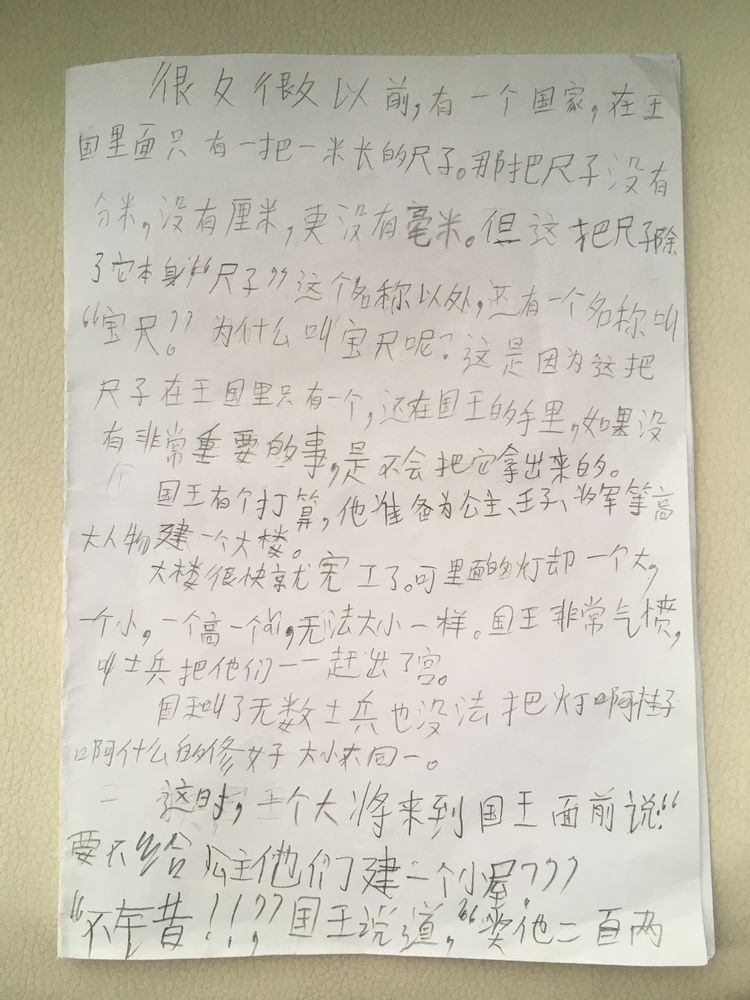 很久很久以前,有一个国家,在王
国里面只有一把一米长的尺子。那把尺子没有
分米,没有厘米,更没有毫米。但这把尺子除
了它本身“尺子”这个名称以外,还有一个名称叫
“宝尺。” 为什么叫宝尺呢?这是因为这把
尺子在王国里只有一个,还在国王的手里,如果没
有非常重要的事,是不会把它拿出来的。
国王有个打算,他准备为公主、王子、将军等高
大人物建一个大楼。
大楼很快就完工了。可里面的灯却一个大,
一个小,一个高一个,无法大小一样。国王非常气愤,
叫士兵把他们一一赶出了宫。
国王叫了无数士兵也没法把灯啊柱子
啊什么的修好大小不同一。
这时,一个大将来到国王面前说:“
要不给公主他们建一个小屋?”
“不!!”国王说道,“奖他二百两